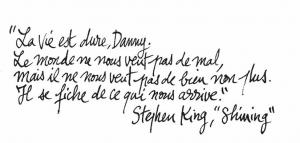 "La vie est dure, Danny.
Le monde ne nous veut pas de mal,
mais il ne nous veut pas de bien non plus.
Il se fiche de ce qui nous arrive."
Stephen King, "Shining"